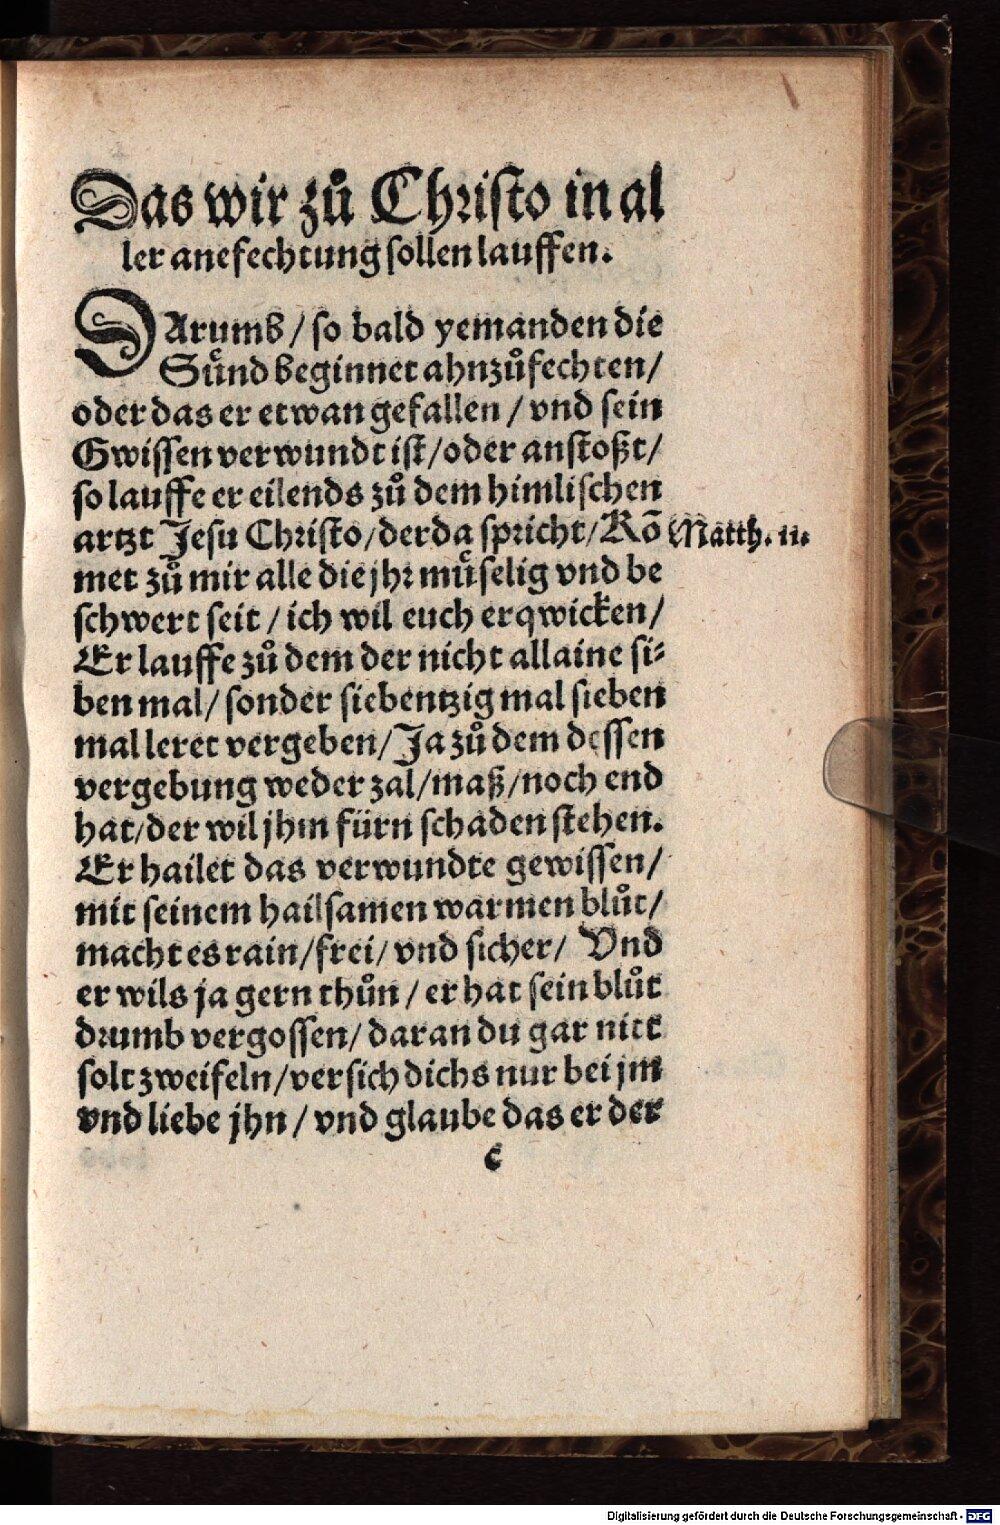 Das wir zů Christo in al
ler anefechtung sollen lauffen.
DArumb / so bald yemanden die
Sünd beginnet ahnzůfechten /
oder das er etwan gefallen / vnd sein
Gwissen verwundt ist / oder anstoßt /
so lauffe er eilends zů dem himlischen
artzt Jesu Christo / der da spricht / Kō
Matth. 11.
met zů mir alle die jhr müselig vnd be
schwert seit / ich wil euch erqwicken /
Er lauffe zů dem der nicht allaine si-
ben mal / sonder siebentzig mal sieben
mal leret vergeben / Ja zů dem dessen
vergebung weder zal / maß / noch end
hat / der wil jhm fürn schaden stehen.
Er hailet das verwundte gewissen /
mit seinem hailsamen warmen blůt /
macht es rain / frei / vnd sicher / Vnd
er wils ja gern thůn / er hat sein blůt
drumb vergossen / daran du gar nitt
solt zweifeln / versich dichs nur bei jm
vnd liebe jhn / vnd glaube das er der
c
Digitalisierung gefördert durch die Deutsche Forschungsgemeinschaft - DFG